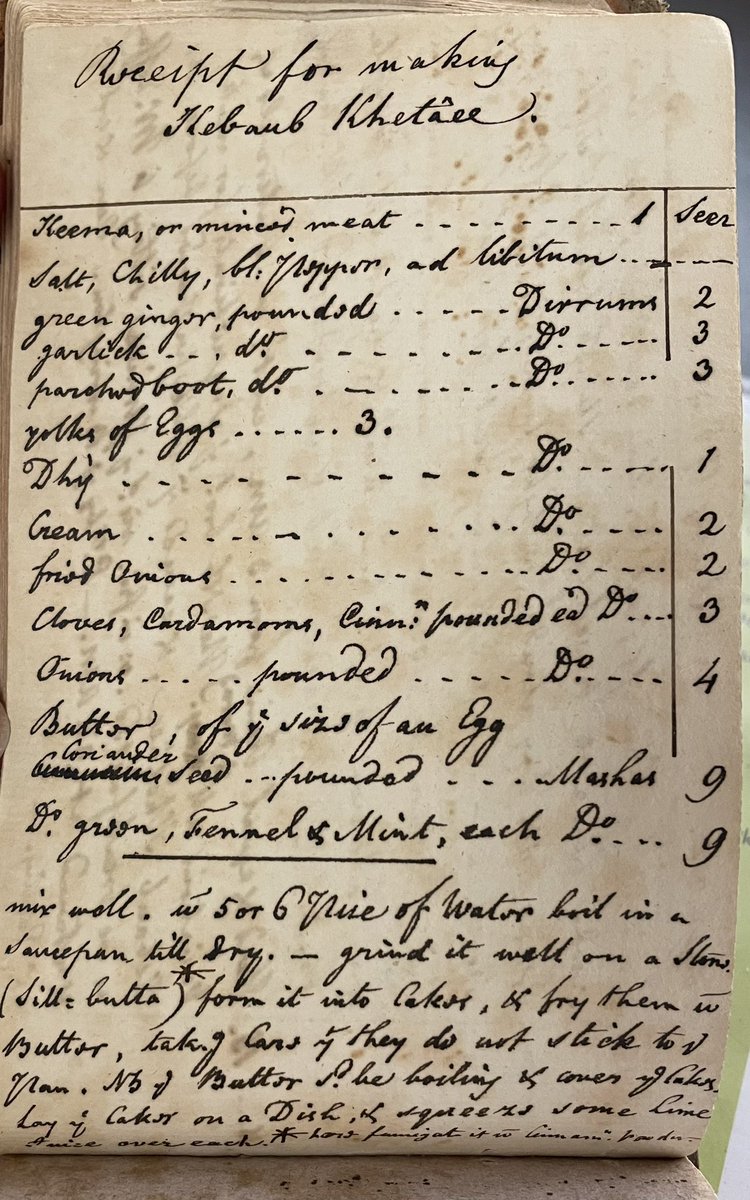 Receipt for making
Kebaub Khetâee.
Keema, or minced meat - - - - - - - - - 1 Seer
Salt, Chilly, bl: Pepper, ad libitum - - - - - -
green ginger, pounded - - - - - Dirrums 2
garlick - - - do - - - - - - - - Do - - - - - 3
parched boot, do - - - - - - - Do - - - - - 3
yolks of Eggs - - - - - - 3.
Dhÿ - - - - - - - - - - Do - - - - 1
Cream - - - - - - - - - - Do - - - - 2
fried Onions - - - - - - - - - Do - - - - 2
Cloves, Cardamoms, Cinn:n pounded ea Do - - - 3
Onions - - - - - pounded - - - - - - Do - - - - 4
Butter, of ye size of an Egg
Coriander Seed - - pounded - - - - Mashas 9
Do. green, Fennel & Mint, each Do - - - - 9
mix well. w 5 or 6 Pice of Water boil in a
saucepan till dry. — grind it well on a Stone.
(Sill=butta)* form it into Cakes, & fry them w
Butter, tak.g Care yt they do not stick to ye
Pan. NB ye Butter sd. be boiling & cover ye Cakes.
Lay ye Cakes on a Dish, & squeeze some Lime
Juice over each. * how fumigat it w Cinnamn. powder